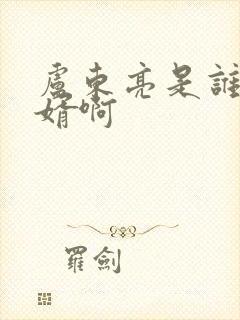 盧東亮是誰
婿啊
羅劍